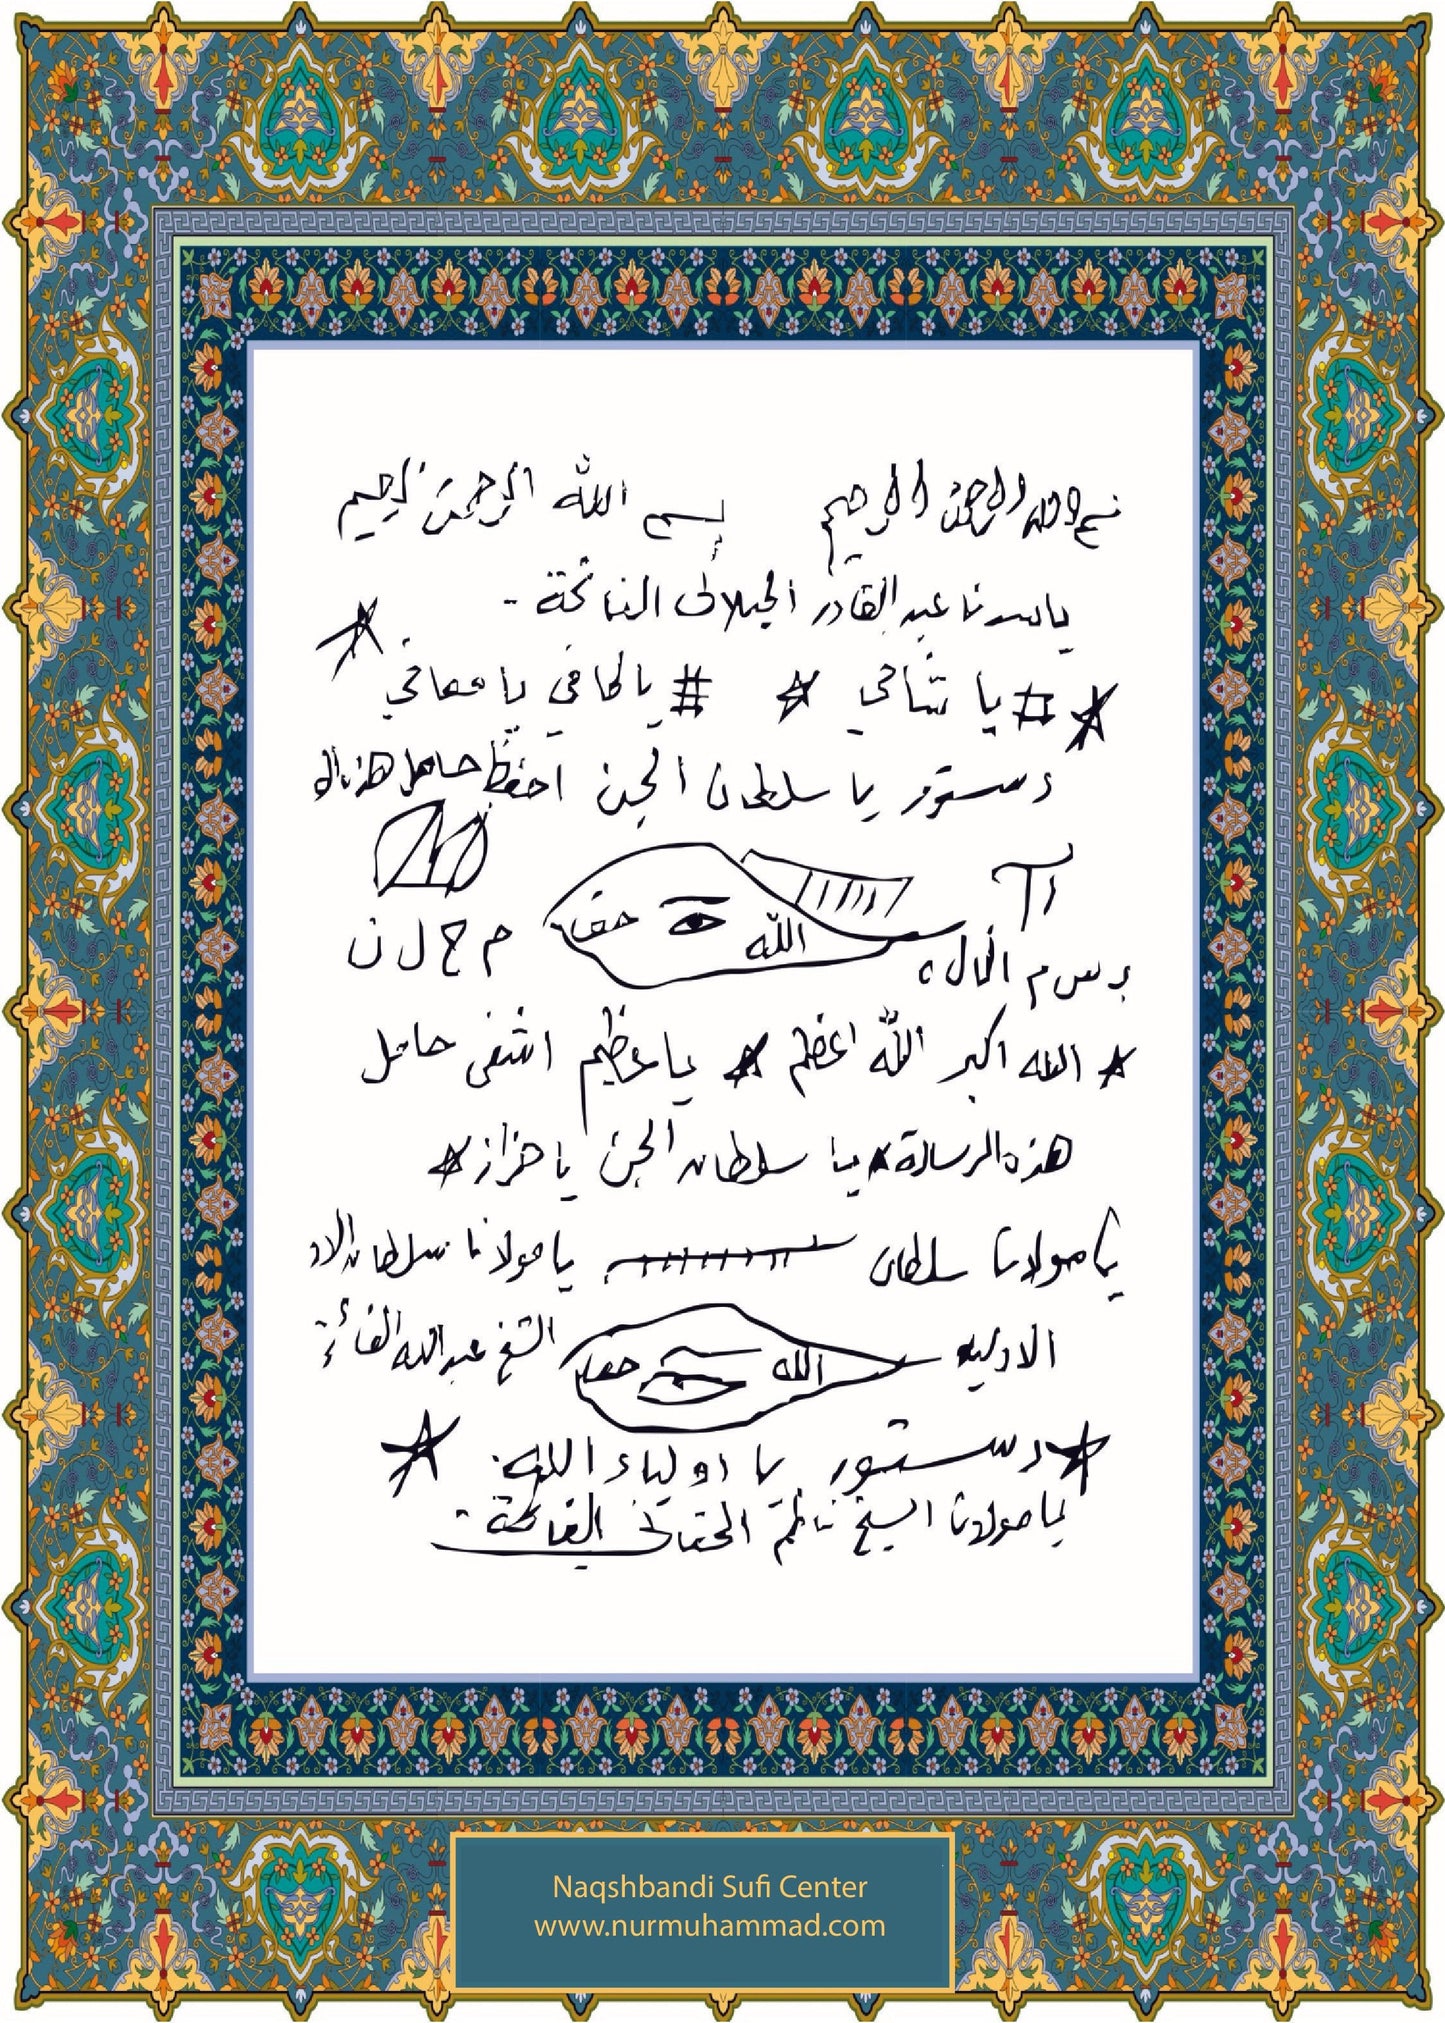 بسم الله الرحمن الرحيم بسم الله الرحمن الرحيم
يا سدنا عبد القادر الجيلاني الفاتحة -
# يا شافي # يا كافي يا معافي
دستور يا سلطان الجن احفظ حامل هذه الر
م ح ل ن حقا الله
ب س م الله
الله اكبر الله اعظم يا عظيم اشفى حامل
هذه الرسالة يا سلطان الجن يا
يا مولانا سلطان يا مولانا سلطان الاو
الاوليه الله حقا الشيخ عبد الله الفائز
دستور يا اولياء الله
يا مولانا الشيخ ناظم الحقاني الفاتحة -
Naqshbandi Sufi Center
www.nurmuhammad.com